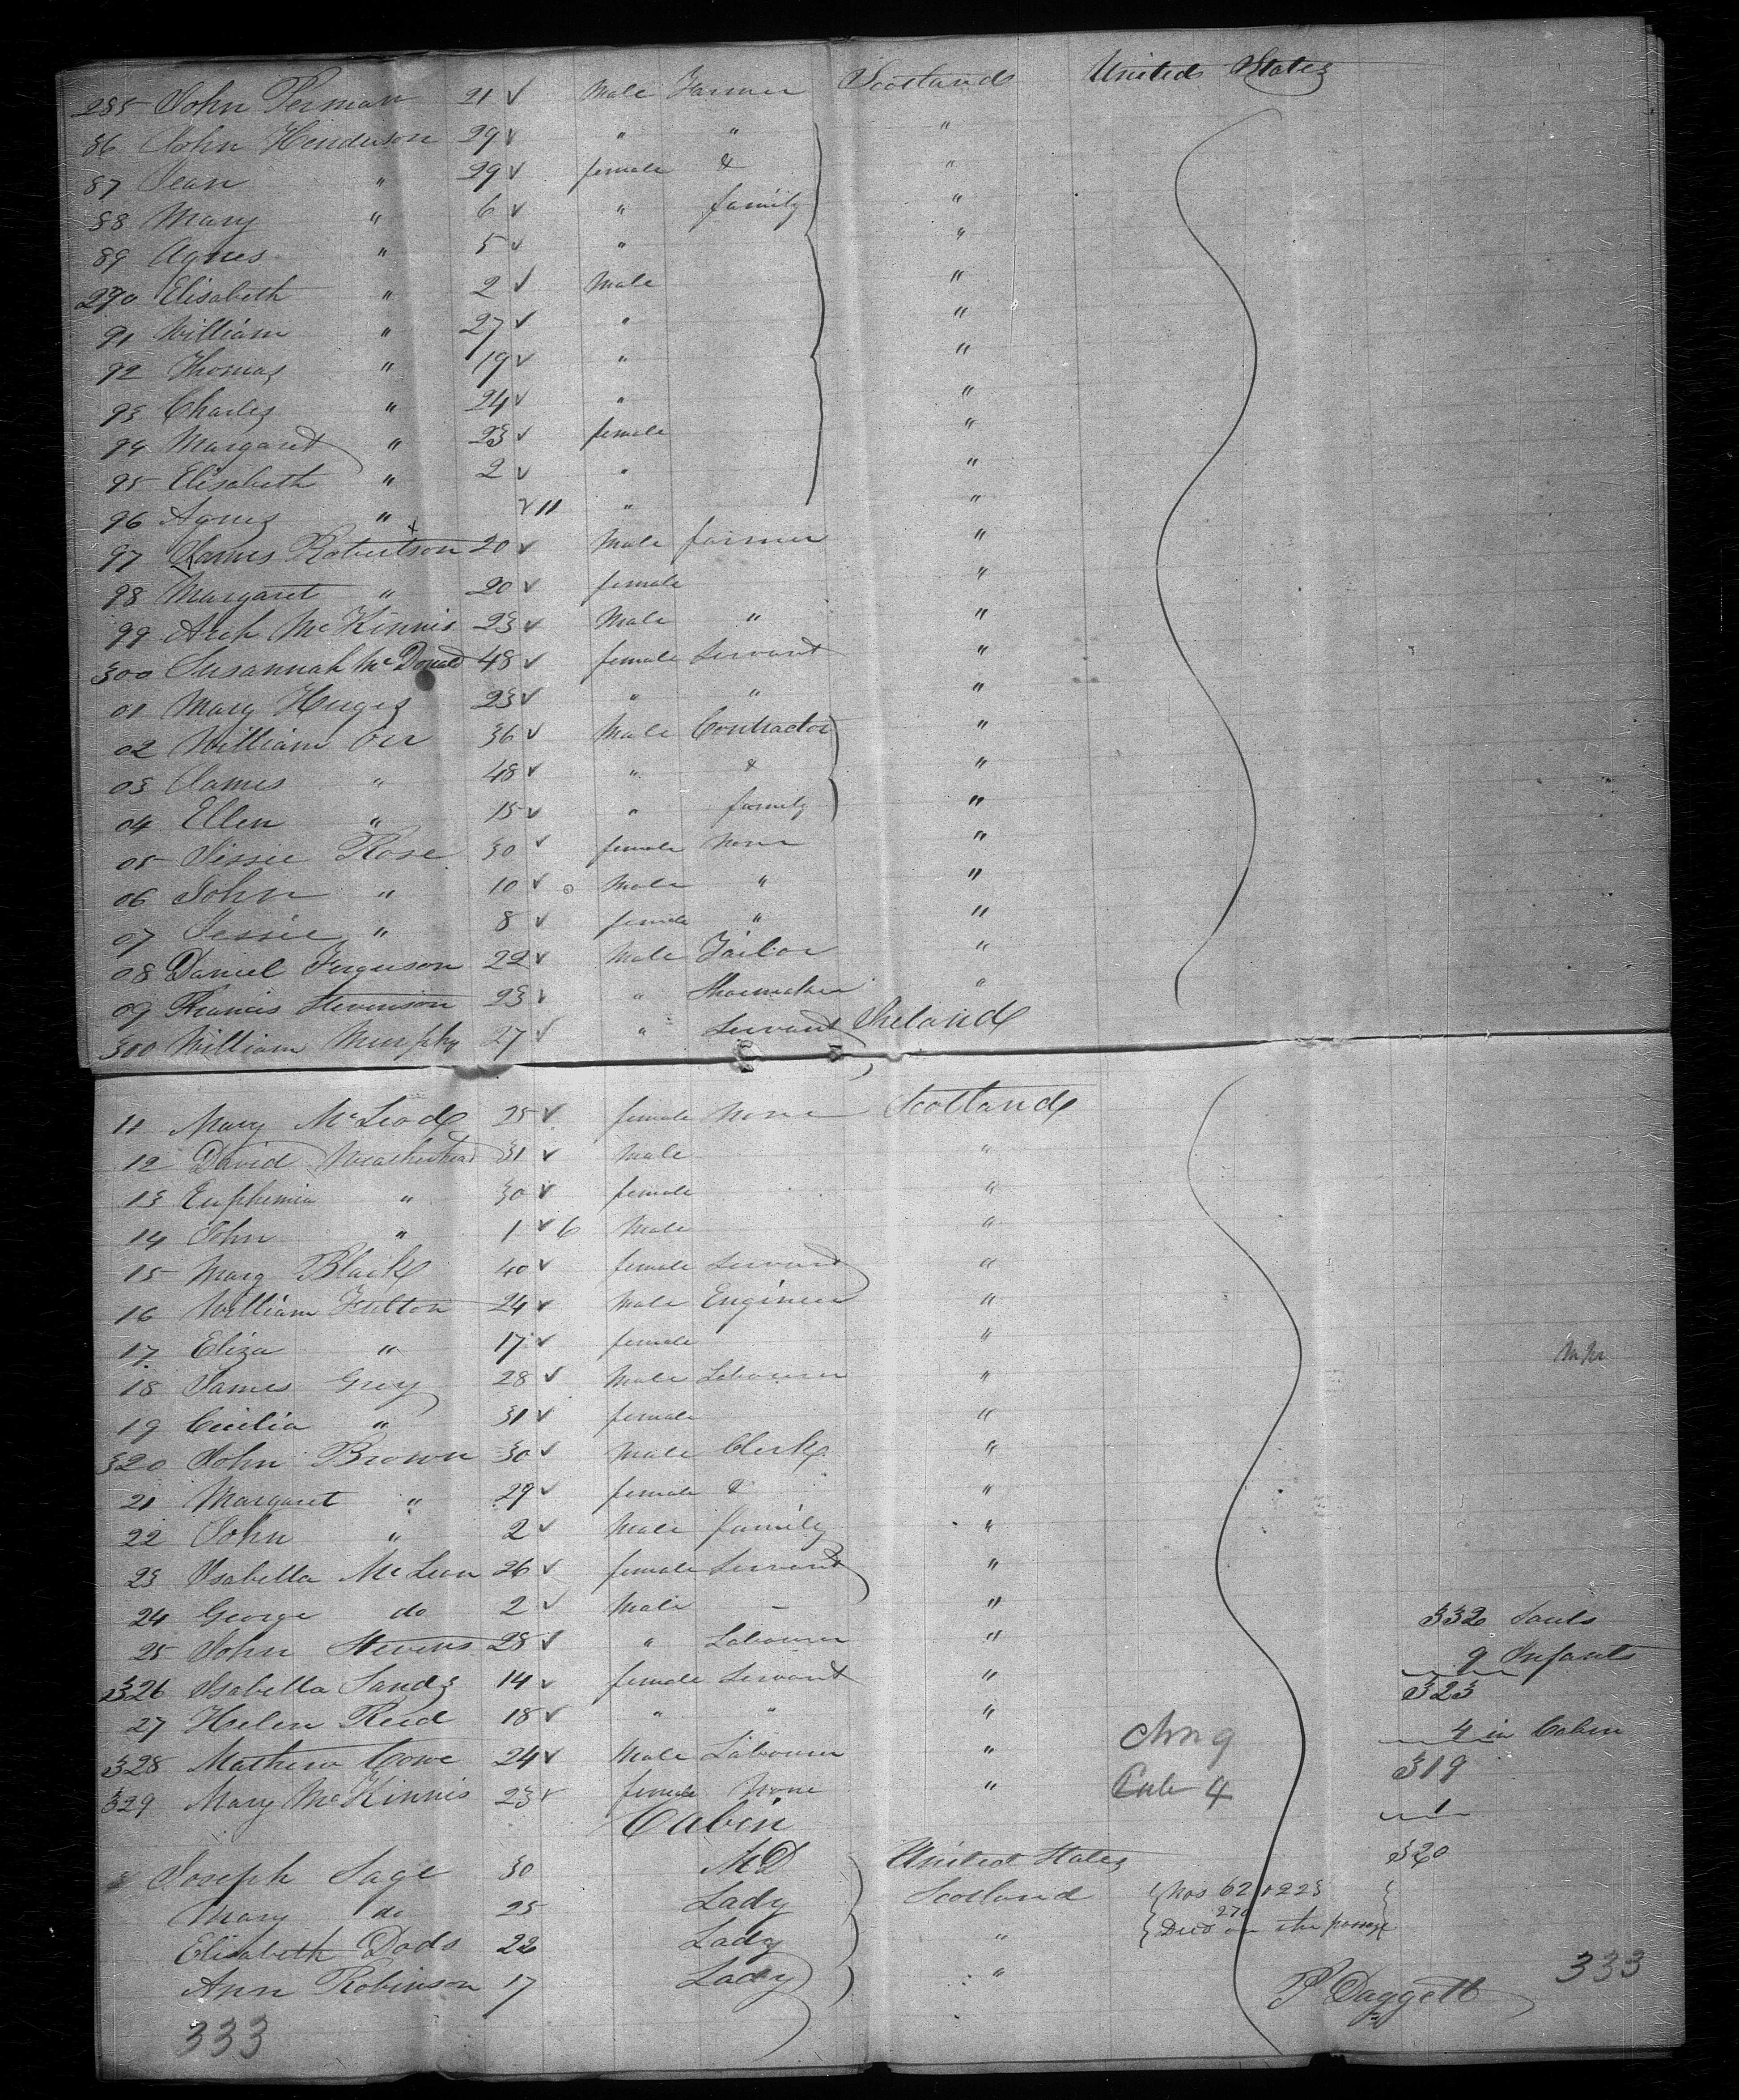 285 John Perman 21 ✓ Male Farmer Scotland United States
86 John Henderson 29 ✓ " " "
87 Jean " 29 ✓ female & "
88 Mary " 6 ✓ " family "
89 Agnes " 5 ✓ " "
290 Elisabeth " 2 ✓ Male "
91 William " 27 ✓ " "
92 Thomas " 19 ✓ " "
93 Charles " 24 ✓ " "
94 Margaret " 23 ✓ female "
95 Elisabeth " 2 ✓ " "
96 Agnes " ✓ 11 " "
97 James Robertson 20 ✓ Male farmer "
98 Margaret " 20 ✓ female "
99 Arch McKinnis 23 ✓ Male " "
300 Susannah McDonald 48 ✓ female Servant "
01 Mary Huges 23 ✓ " " "
02 William Orr 36 ✓ Male Contractor "
03 James " 48 ✓ " & "
04 Ellen " 15 ✓ " family "
05 Jessie Rose 30 ✓ female None "
06 John " 10 ✓ Male " "
07 Jessie " 8 ✓ female " "
08 Daniel Ferguson 22 ✓ Male Tailor "
09 Francis Stevenson 23 ✓ " Shoemaker "
300 William Murphy 27 ✓ " Servant Ireland
11 Mary McLeod 25 ✓ female None Scotland
12 David Weatherhead 31 ✓ Male "
13 Euphemia " 30 ✓ female "
14 John " 1 ✓ 6 Male "
15 Mary Black 40 ✓ female Servant "
16 William Fulton 24 ✓ Male Engineer "
17 Eliza " 17 ✓ female "
18 James Grey 28 ✓ Male Labourer "
19 Cecilia " 31 ✓ female "
320 John Brown 30 ✓ Male Clerk "
21 Margaret " 29 ✓ female & "
22 John " 2 ✓ Male family "
23 Isabella McLean 26 ✓ female Servant "
24 George do 2 ✓ Male – "
332 Souls
25 John Stevens 28 ✓ " Labourer "
9 Infants
326 Isabella Sands 14 ✓ female Servant "
323
27 Helen Reid 18 ✓ " " "
4 in Cabin
328 Mathew Cowe 24 ✓ Male Labourer " 9
319
329 Mary McKinnis 23 ✓ female None " Cab 4
1
Cabin
320
Joseph Sage 30 MD United States
Mary do 25 Lady Scotland Nos 62 + 223
270
Elisabeth Dods 22 Lady " Died on the passage
Ann Robinson 17 Lady "
P Daggett 333
333